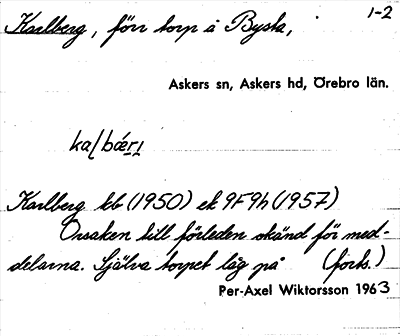 1-2
Karlberg, förr torp å Bysta,
Askers sn, Askers hd, Örebro län.
Karlberg kb (1950) ek 9F9h (1957)
Orsaken till förleden okänd för med-
delarna. Själva torpet låg på (forts.)
Per-Axel Wiktorsson 1963